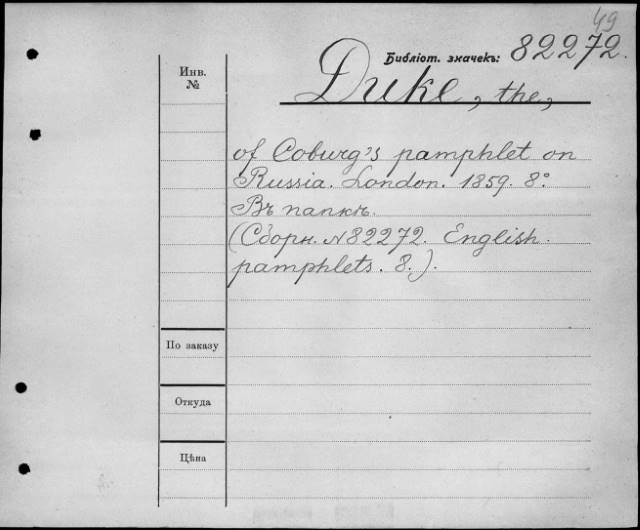 49
Библіот. значекъ: 82272.
Инв.
№
Duke, the,
of Coburg's pamphlet on
Russia. London. 1859. 8°.
Въ папкѣ.
(Сборн. N 82272. English
pamphlets. 8.).
По заказу
Откуда
Цѣна